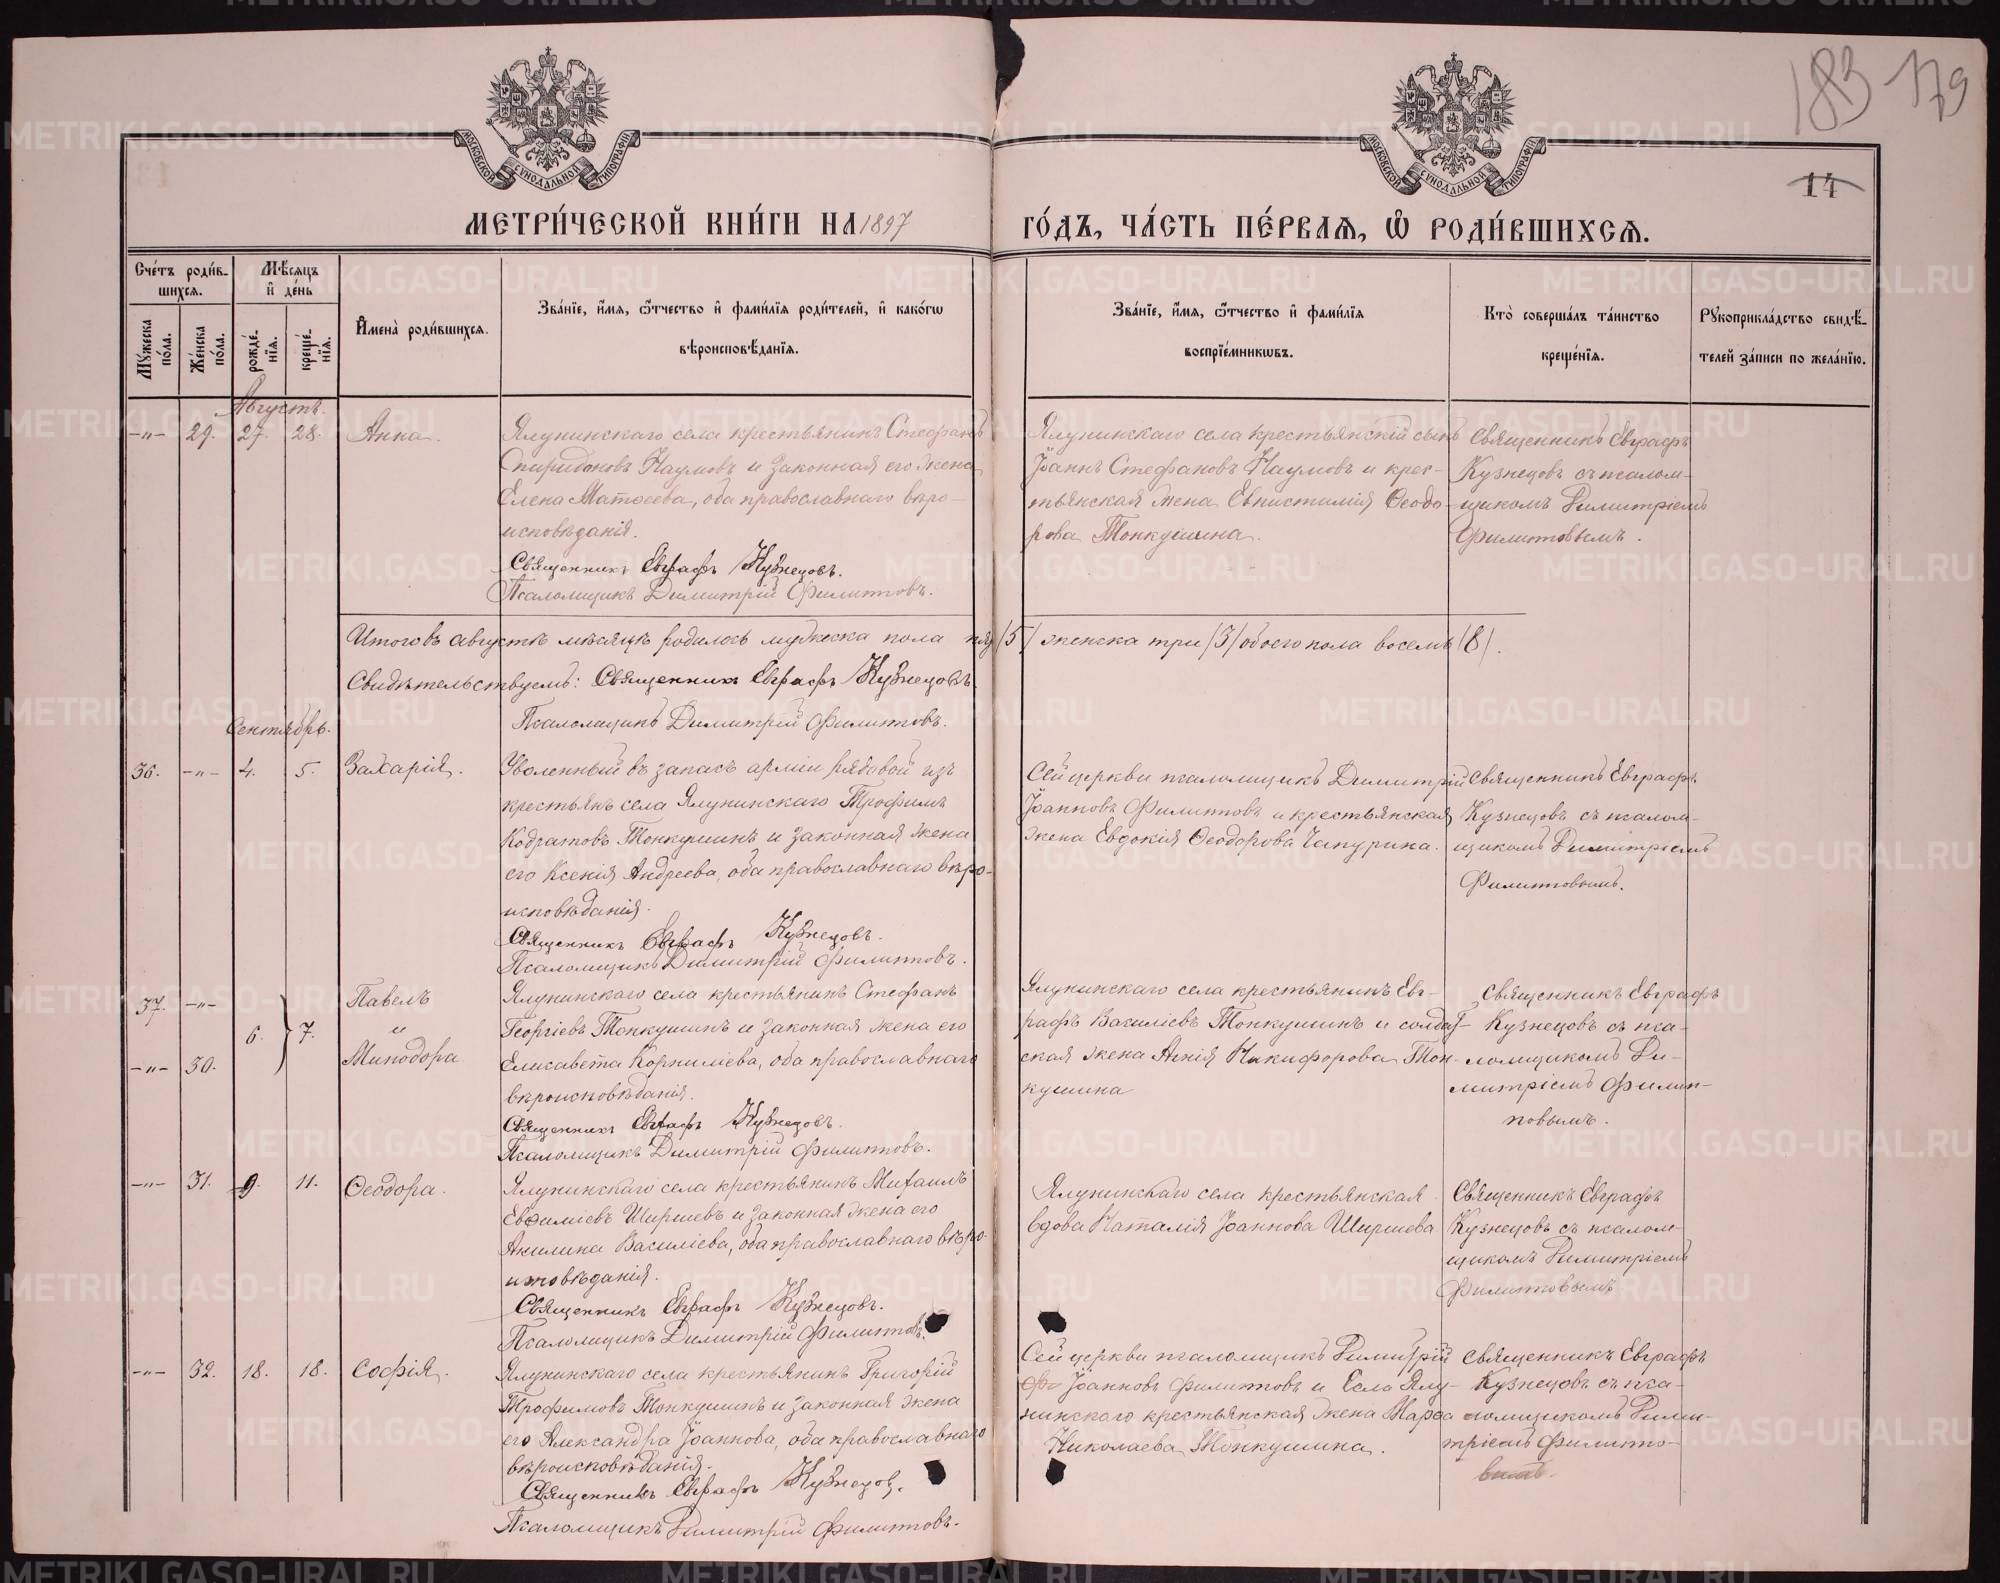 183 179
14
МОСКОВСКОЙ СѴНОДАЛЬНОЙ ТИПОГРАФІИ
МОСКОВСКОЙ СѴНОДАЛЬНОЙ ТИПОГРАФІИ
МЕТРИ́ЧЕСКОЙ КНИ́ГИ НА 1897 ГО́ДЪ, ЧА́СТЬ ПЕ́РВАѦ, Ѽ РОДИ́ВШИХСѦ.
Сче́тъ роди́в-
шихсѧ.
Мѣ́сѧцъ
и҆ де́нь
Мꙋ́жеска по́ла.
Же́нска по́ла.
рожде́-
нїѧ.
креще́-
нїѧ.
И҆мена̀ роди́вшихсѧ.
Зва́нїе, и҆́мѧ, ѻ҆́тчество и҆ фами́лїѧ роди́телей, и҆ како́гѡ
вѣроисповѣ́данїѧ.
Зва́нїе, и҆́мѧ, ѻ҆́тчество и҆ фами́лїѧ
воспрїе́мникѡвъ.
Кто̀ соверша́лъ та́инство
креще́нїѧ.
Рꙋкоприкла́дство свидѣ́-
телей за́писи по жела́нїю.
Августъ.
-"- 29. 27. 28. Анна.
Ялунинскаго села крестьянинъ Стефанъ
Спиридоновъ Наумовъ и законная его жена
Елена Матѳеева, оба православнаго вѣро-
исповѣданія.
Священникъ Евграфъ Кузнецовъ.
Псаломщикъ Димитрій Филитовъ.
Ялунинскаго села крестьянскій сынъ
Іоаннъ Стефановъ Наумовъ и крес-
тьянская жена Евпистимія Ѳеодо-
рова Топкушина.
Священникъ Евграфъ
Кузнецовъ съ псалом-
щикомъ Димитріемъ
Филитовымъ.
Итого въ августѣ мѣсяцѣ родилось мужеска пола пять /5/ женска три /3/ обоего пола восемь /8/.
Свидѣтельствуемъ: Священникъ Евграфъ Кузнецовъ.
Псаломщикъ Димитрій Филитовъ.
Сентябрь.
36. -"- 4. 5. Захарія.
Уволенный въ запасъ арміи рядовой изъ
крестьянъ села Ялунинскаго Трофимъ
Кодратовъ Топкушинъ и законная жена
его Ксенія Андреева, оба православнаго вѣро-
исповѣданія.
Священникъ Евграфъ Кузнецовъ.
Псаломщикъ Димитрій Филитовъ.
Сей церкви псаломщикъ Димитрій
Іоанновъ Филитовъ и крестьянская
жена Евдокія Ѳеодорова Чапурина.
Священникъ Евграфъ
Кузнецовъ съ псалом-
щикомъ Димитріемъ
Филитовымъ.
37. -"- Павелъ
и
6. 7.
-"- 30. Минодора.
Ялунинскаго села крестьянинъ Стефанъ
Георгіевъ Топкушинъ и законная жена его
Елисавета Корниліева, оба православнаго
вѣроисповѣданія.
Священникъ Евграфъ Кузнецовъ.
Псаломщикъ Димитрій Филитовъ.
Ялунинскаго села крестьянинъ Евг-
рафъ Василіевъ Топкушинъ и солдат-
ская жена Никифорова Топ-
кушина
Священникъ Евграфъ
Кузнецовъ съ пса-
ломщикомъ Ди-
митріемъ Филит-
овымъ.
-"- 31. 9. 11. Ѳеодора.
Ялунинскаго села крестьянинъ Михаилъ
Евѳиміевъ Ширшевъ и законная жена его
Акилина Василіева, оба православнаго вѣро-
исповѣданія.
Священникъ Евграфъ Кузнецовъ.
Псаломщикъ Димитрій Филитовъ.
Ялунинскаго села крестьянская
вдова Наталія Іоаннова Ширшева
Священникъ Евграфъ
Кузнецовъ съ псалом-
щикомъ Димитріемъ
Филитовымъ
-"- 32. 18. 18. Софія.
Ялунинскаго села крестьянинъ Григорій
Трофимовъ Топкушинъ и законная жена
его Александра Іоаннова, оба православнаго
вѣроисповѣданія.
Священникъ Евграфъ Кузнецовъ.
Псаломщикъ Димитрій Филитовъ.
Сей церкви псаломщикъ Димитрій
Іоанновъ Филитовъ и села Ялу-
нинскаго крестьянская жена Марѳа
Николаева Топкушина.
Священникъ Евграфъ
Кузнецовъ съ пса-
ломщикомъ Дими-
тріемъ Филито-
вымъ.
METRIKI.GASO-URAL.RU